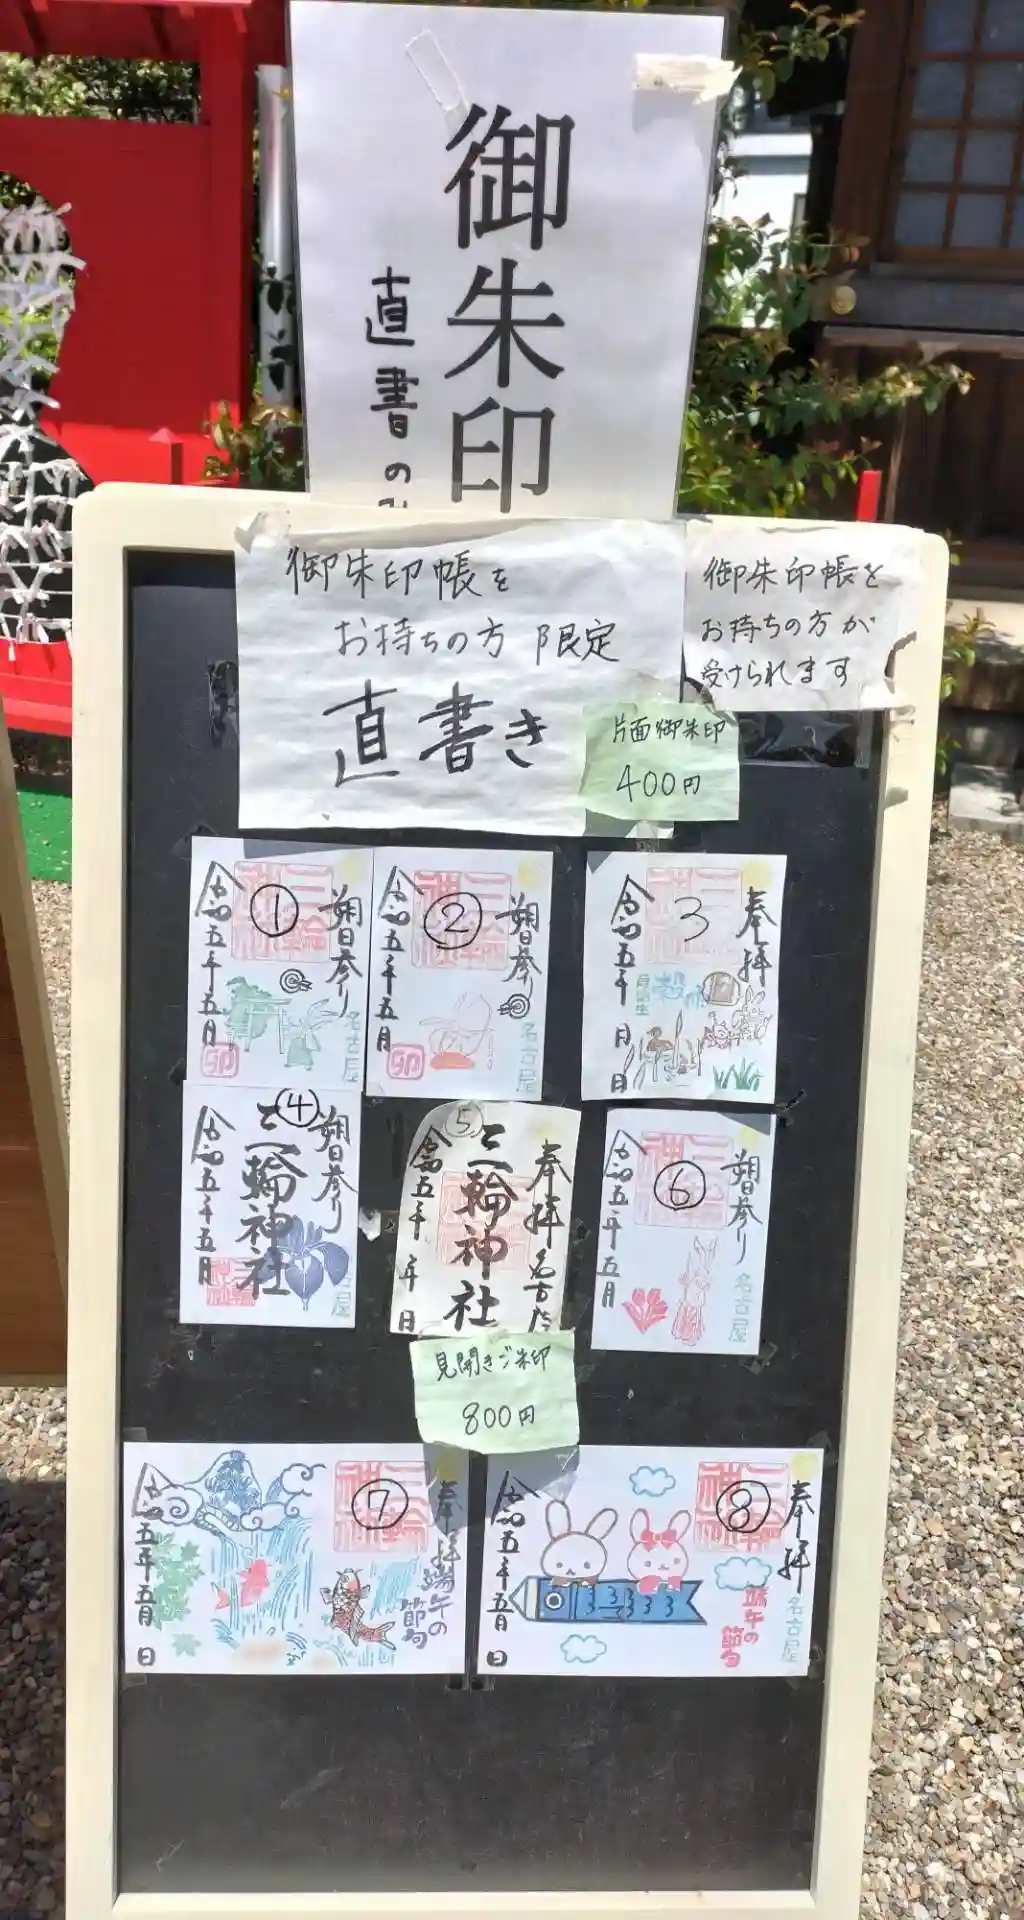 御朱印
直書のみ
御朱印帳を
お持ちの方限定
直書き
御朱印帳を
お持ちの方が
受けられます
片面御朱印
400円
①
朔日参り
令和五年五月
名古屋
卯
②
朔日参り
令和五年五月
名古屋
卯
3
奉拝
令和五年 月 日
④
朔日参り
三輪神社
令和五年五月
⑤
奉拝
名古屋
三輪神社
令和五年 年 日
⑥
朔日参り
令和五年五月
名古屋
見開きご朱印
800円
⑦
奉拝
端午の
節句
令和五年五月 日
⑧
奉拝
名古屋
端午の節句
令和五年五月 日